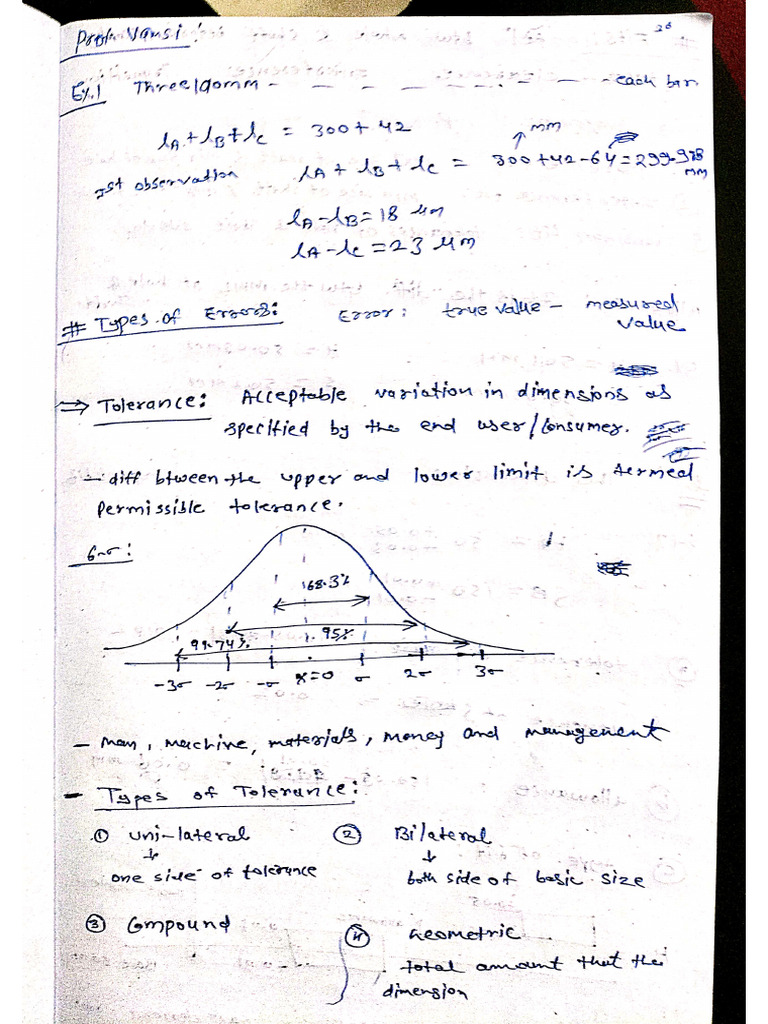 Prof. Vansi:
Ex.1 Three 100mm - - - - - - - - - each bar.
lA + lB + lC = 300 + 42
Ist observation lA + lB + lC = 300 + 42 - 64 = 299.978 mm
mm
lA - lB = 18 μm
lA - lC = 23 μm
# Types of Errors: Error: true value - measured value
⇒ Tolerance: Acceptable variation in dimensions as
specified by the end user/Consumer.
- diff btween the upper and lower limit is termed
permissible tolerance.
6-σ:
68.3%
95%
99.74%
-3σ -2σ -σ x=0 σ 2σ 3σ
- man, machine, materials, money and management
- Types of Tolerance:
① uni-lateral ② Bilateral
↓ ↓
one side of tolerance both side of basic size
③ Compound ④ Geometric
total amount that the
dimension